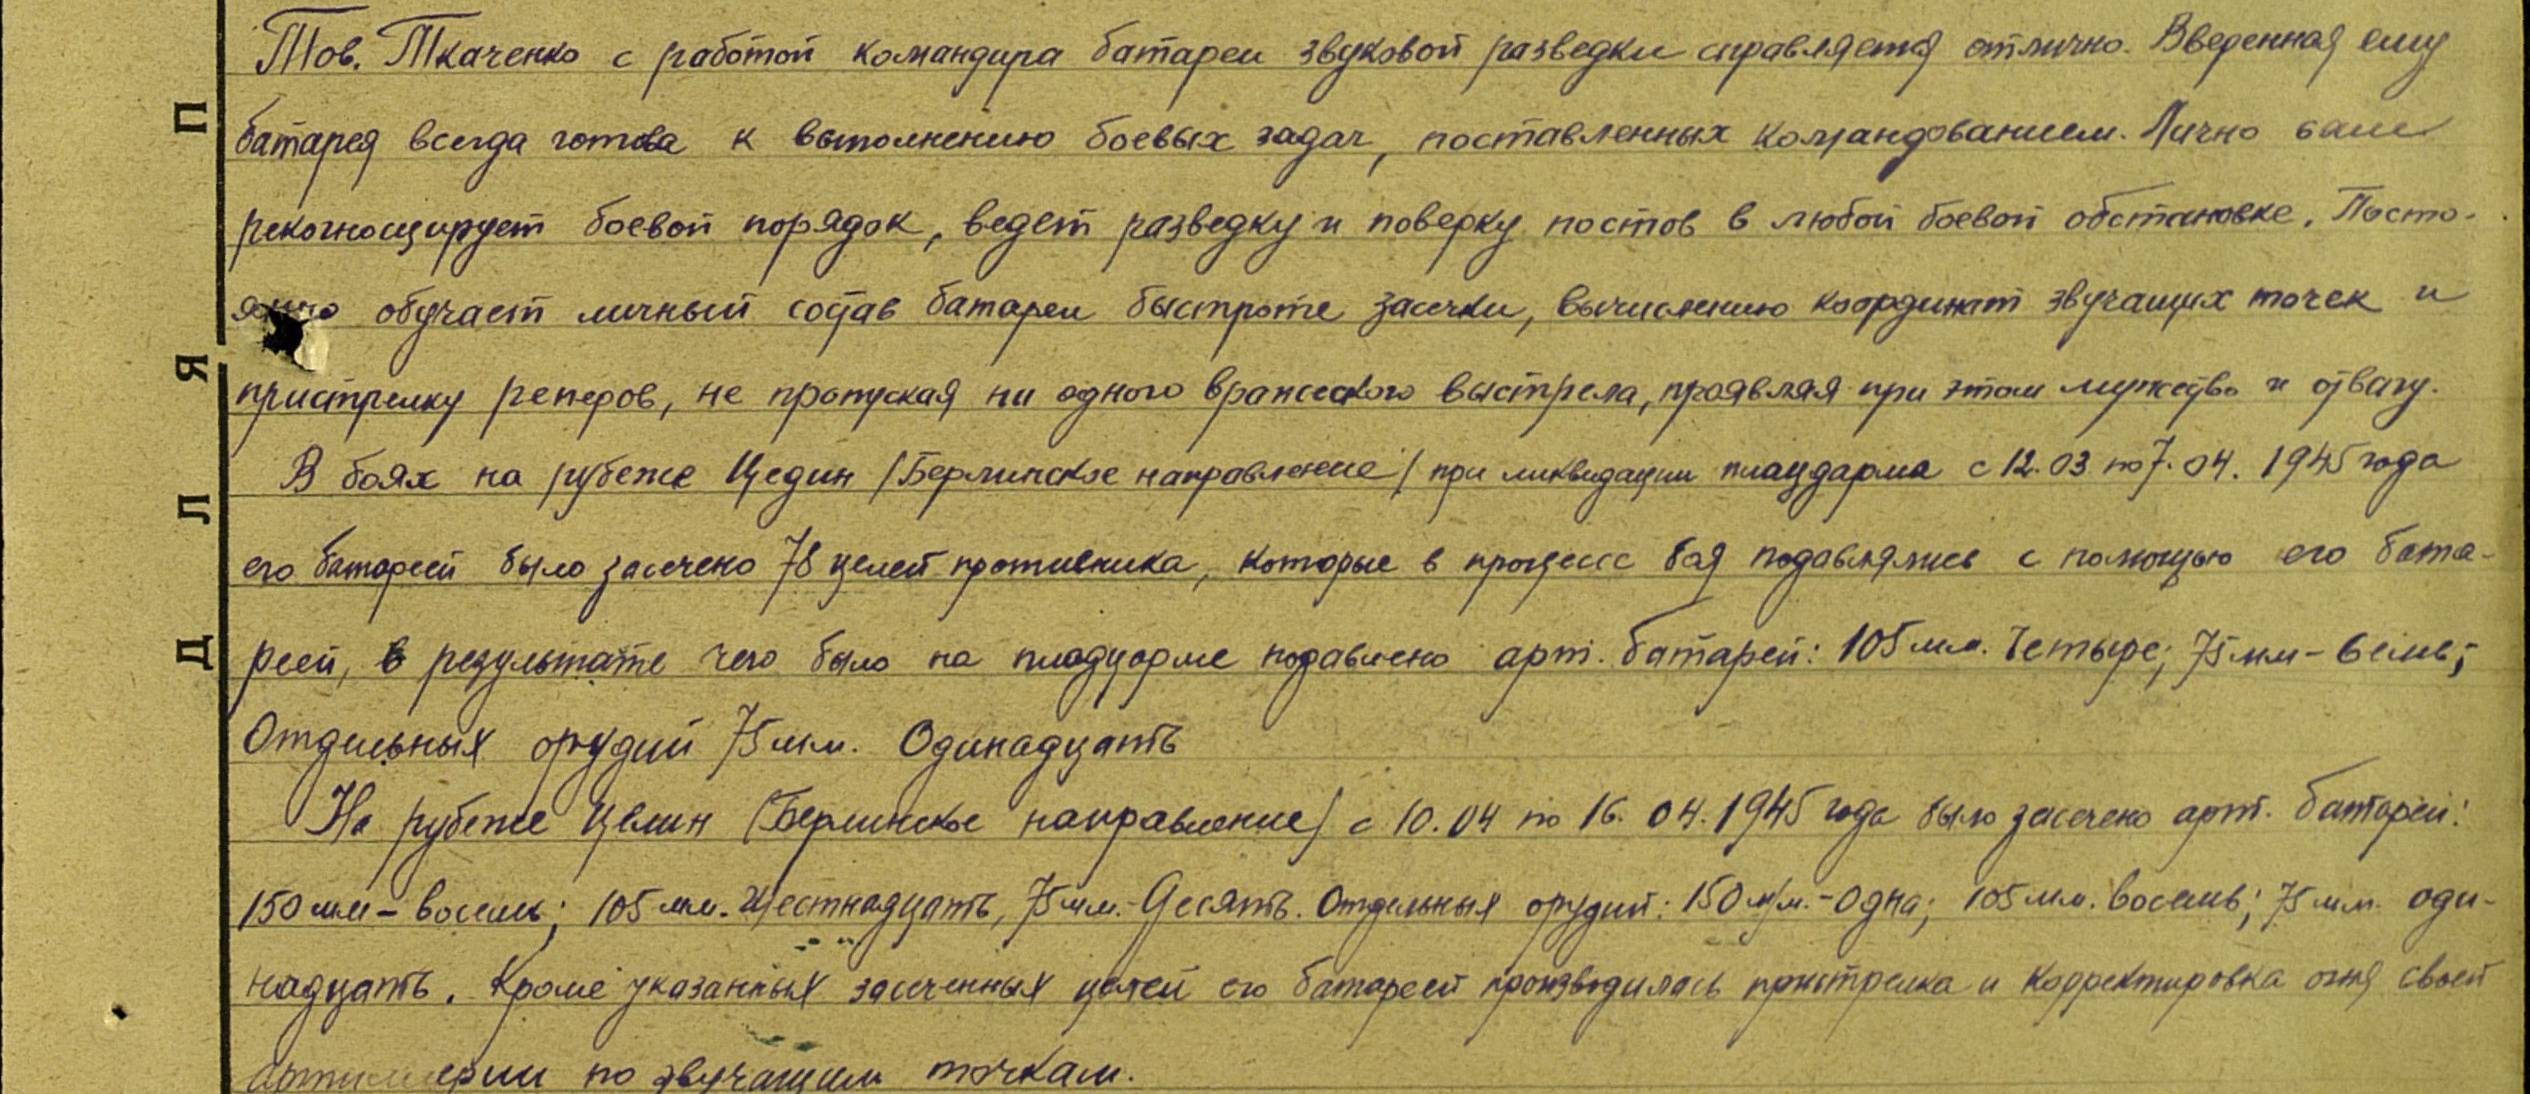 Тов. Ткаченко с работой командира батареи звуковой разведки справляется отлично. Вверенная ему
батарея всегда готова к выполнению боевых задач, поставленных командованием. Лично сам
рекогносцирует боевой порядок, ведет разведку и поверку постов в любой боевой обстановке. Посто-
янно обучает личный состав батареи быстроте засечки, вычислению координат звучащих точек и
пристрелку реперов, не пропуская ни одного вражеского выстрела, проявляя при этом мужество и отвагу.
В боях на рубеже Цедин /Берлинское направление/ при ликвидации плацдарма с 12.03 по 7.04. 1945 года
его батареей было засечено 78 целей противника, которые в процессе боя подавлялись с помощью его бата-
реей, в результате чего было на плацдарме подавлено арт. батарей: 105 мм. Четыре; 75 мм - семь;
Отдельных орудий 75 мм. Одинадцать
На рубеже Целин /Берлинское направление/ с 10.04 по 16.04.1945 года было засечено арт. батарей:
150 мм - восемь; 105 мм. Шестнадцать, 75 мм. - Десять. Отдельных орудий: 150 м/м. - Одна; 105 мм. восемь; 75 мм. оди-
надцать. Кроме указанных засеченных целей его батареей производилась пристрелка и корректировка огня своей
артиллерии по звучащим точкам.
П
Я
Л
Д